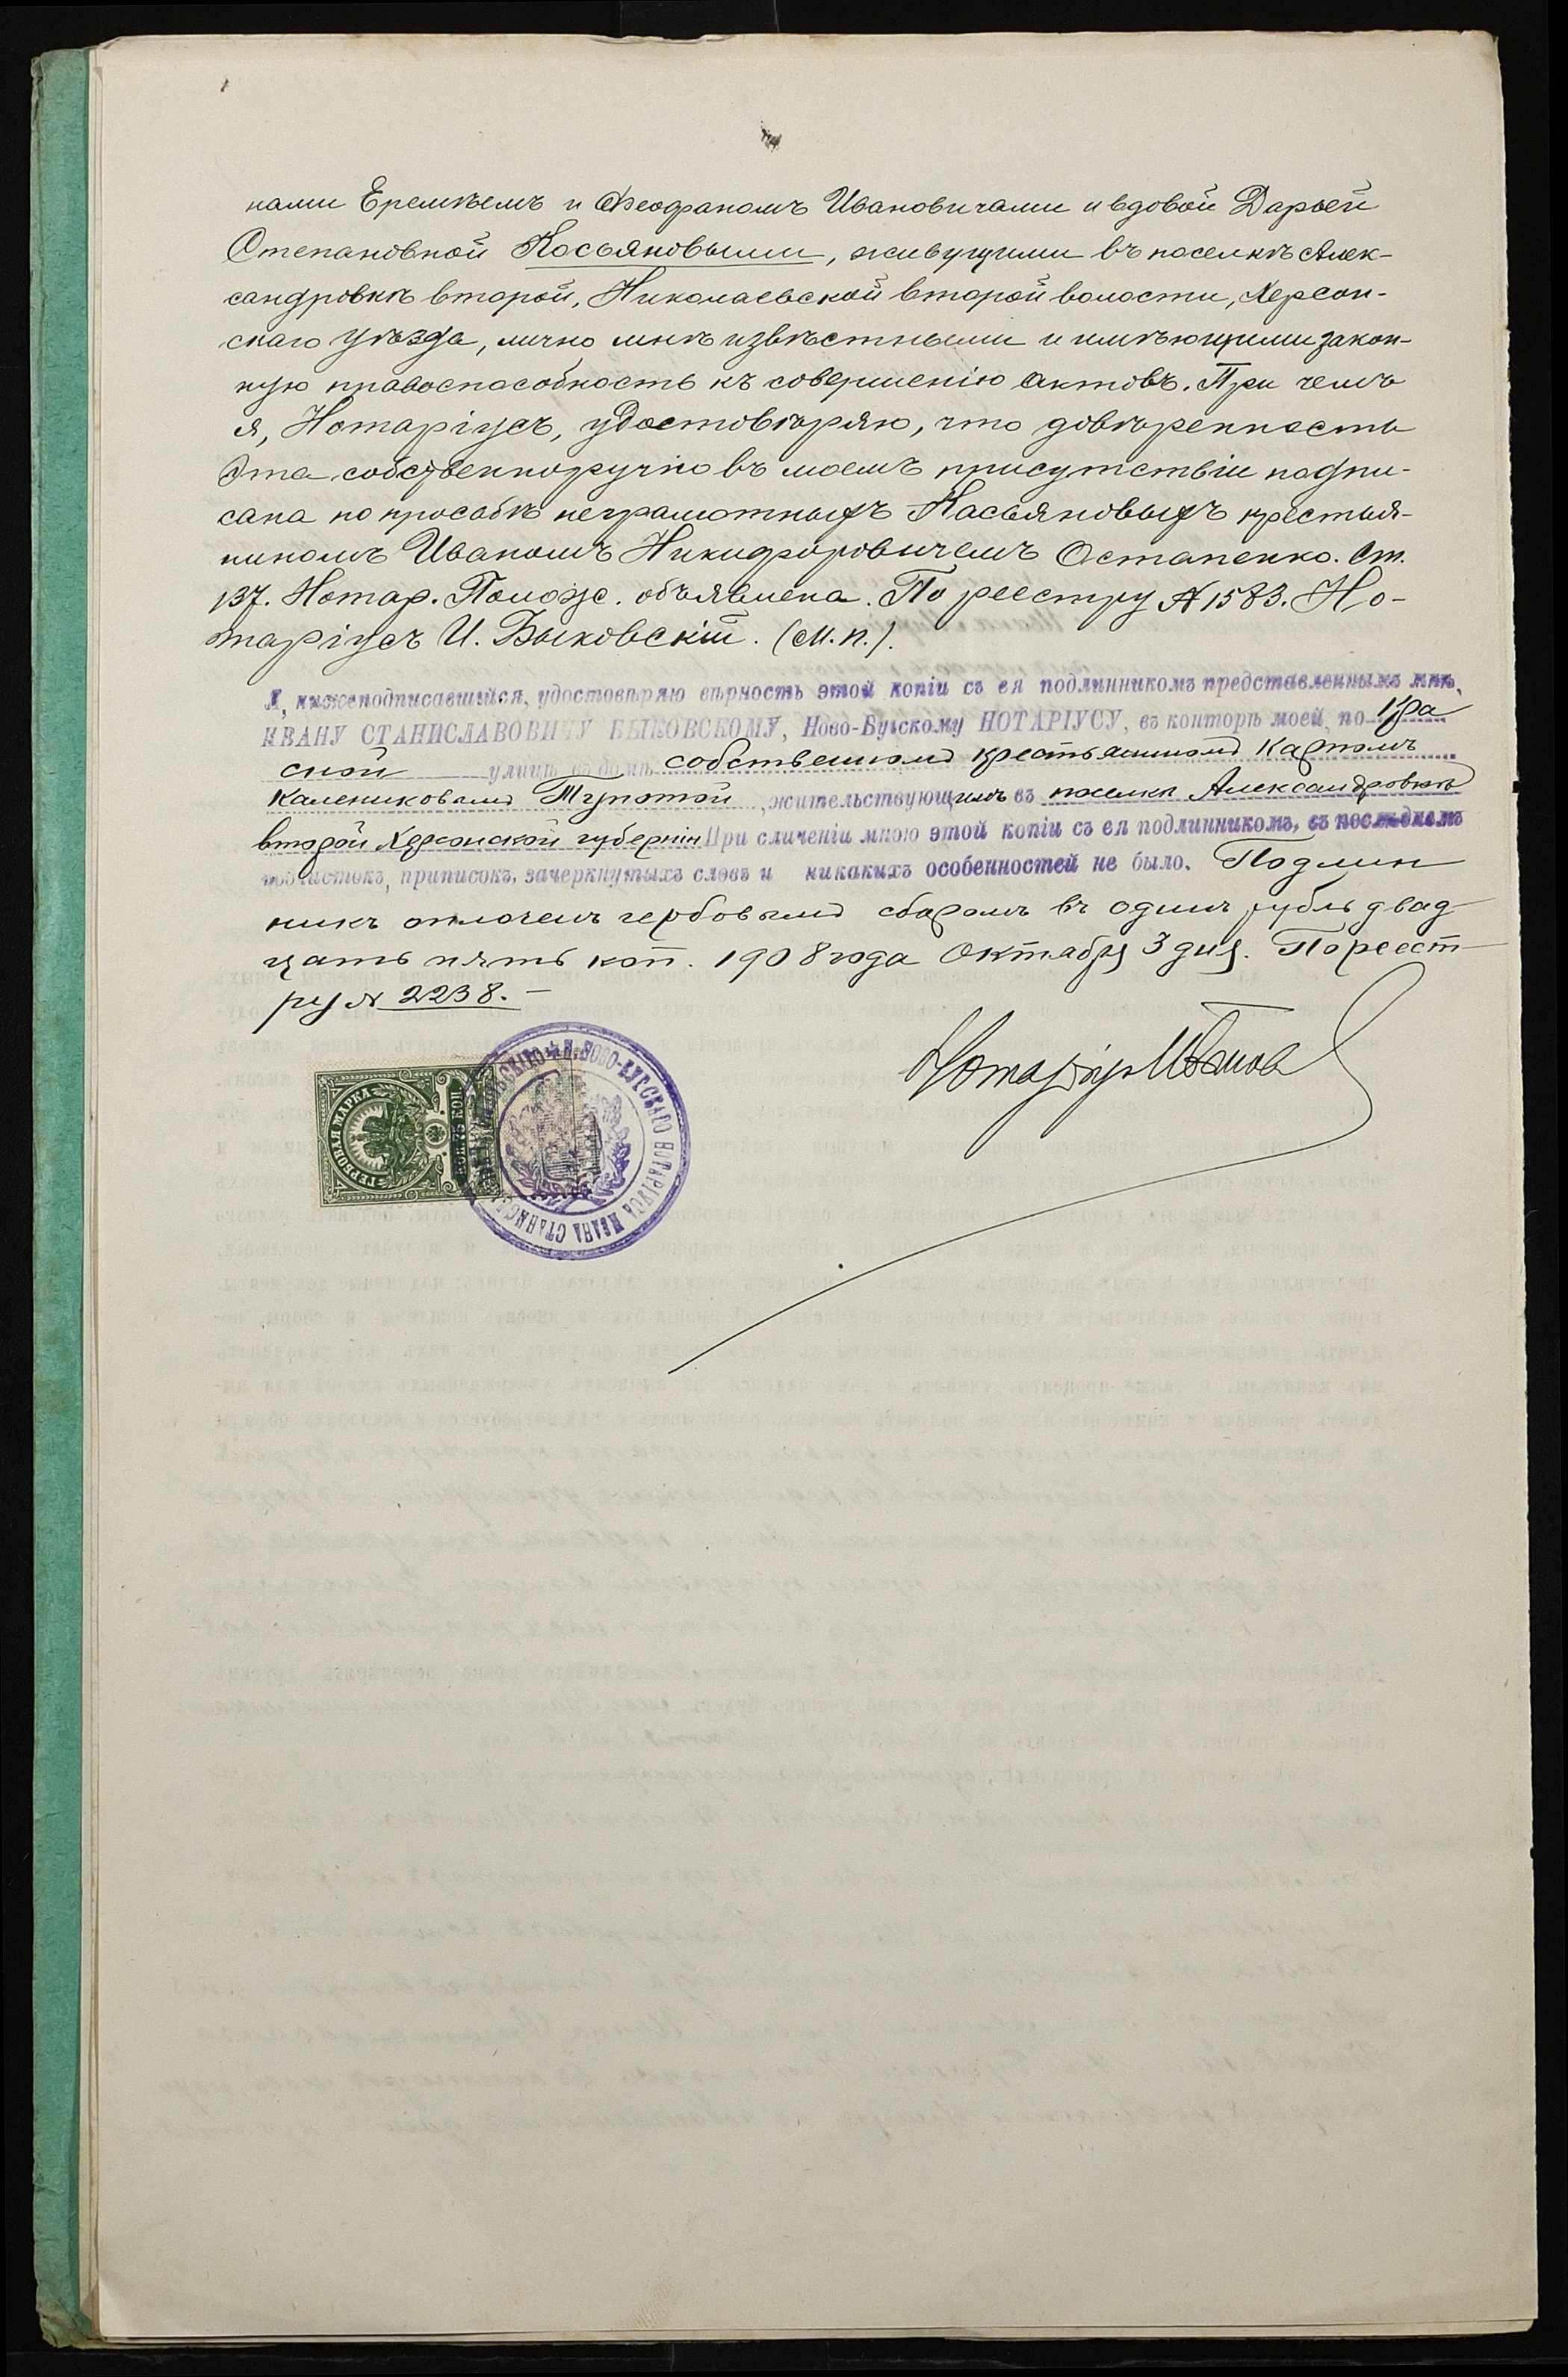 нами Еремѣемъ и Ѳеофаномъ Ивановичами и вдовой Дарьей
Степановной Косьяновыми, живущими въ поселкѣ Алек-
сандровкѣ второй, Николаевской второй волости, Херсон-
скаго уѣзда, лично мнѣ извѣстными и имѣющими закон-
ную правоспособность къ совершенію актовъ. При чемъ
я, Нотаріусъ, удостовѣряю, что довѣренность
эта собственноручно въ моемъ присутствіи подпи-
сана по просьбѣ неграмотныхъ Касьяновыхъ крестья-
ниномъ Иваномъ Никифоровичемъ Остапенко. Ст.
137. Нотар. Полож. объявлена. По реестру № 1583. Но-
таріусъ И. Быковскій. (М. п.).
Я, нижеподписавшійся, удостовѣряю вѣрность этой копіи съ ея подлинникомъ представленнымъ мнѣ,
ИВАНУ СТАНИСЛАВОВИЧУ БЫКОВСКОМУ, Ново-Бугскому НОТАРІУСУ, въ конторѣ моей, по
ской улицѣ въ домѣ собственномъ крестьяниномъ Карпомъ
Калениковымъ Тупотой, жительствующимъ въ поселкѣ Александровкѣ
второй Херсонской губерніи При сличеніи мною этой копіи съ ея подлинникомъ, въ послѣднемъ
подчистокъ, приписокъ, зачеркнутыхъ словъ и никакихъ особенностей не было. Подлин
никъ оплоченъ гербовымъ сборомъ въ одинъ рубль двад-
цать пять коп. 1908 года Октября 3 дня. По реест-
ру № 2238. —
Нотаріус
ГЕРБОВАЯ МАРКА
75 КОП
Н.-НОВО-БУГСКАГО НОТАРІУСА ИВАНА